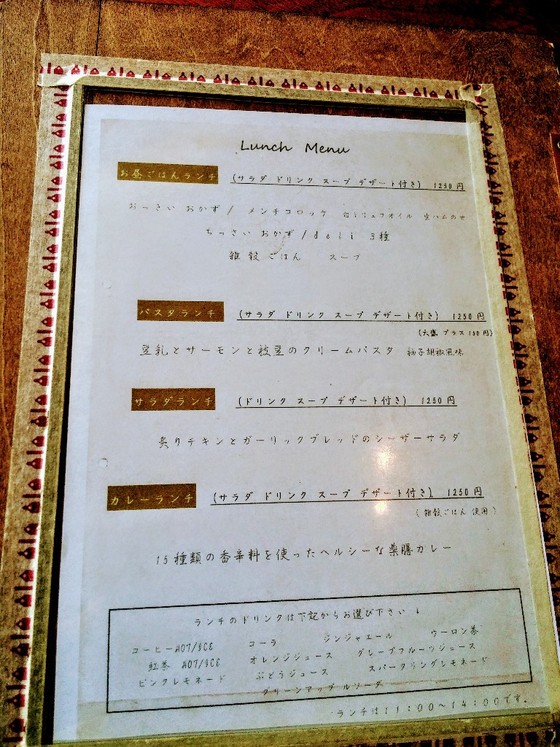 Lunch Menu
お昼ごはんランチ (サラダ ドリンク スープ デザート付き) 1250円
おっきい おかず / メンチコロッケ
ちっさい おかず / deli 3種
雑穀ごはん スープ
パスタランチ (サラダ ドリンク スープ デザート付き) 1250円
(大盛 プラス 150円)
豆乳とサーモンと枝豆のクリームパスタ 柚子胡椒風味
サラダランチ (ドリンク スープ デザート付き) 1250円
炙りチキンとガーリックブレッドのシーザーサラダ
カレーランチ (サラダ ドリンク スープ デザート付き) 1250円
(雑穀ごはん 使用)
15種類の香辛料を使ったヘルシーな薬膳カレー
ランチのドリンクは下記からお選び下さい↓
コーヒーHOT/ICE コーラ ジンジャエール ウーロン茶
紅茶 HOT/ICE オレンジジュース グレープフルーツジュース
ピンクレモネード ぶどうジュース スパークリングレモネード
グリーンアップルソーダ
ランチは11:00〜14:00です。